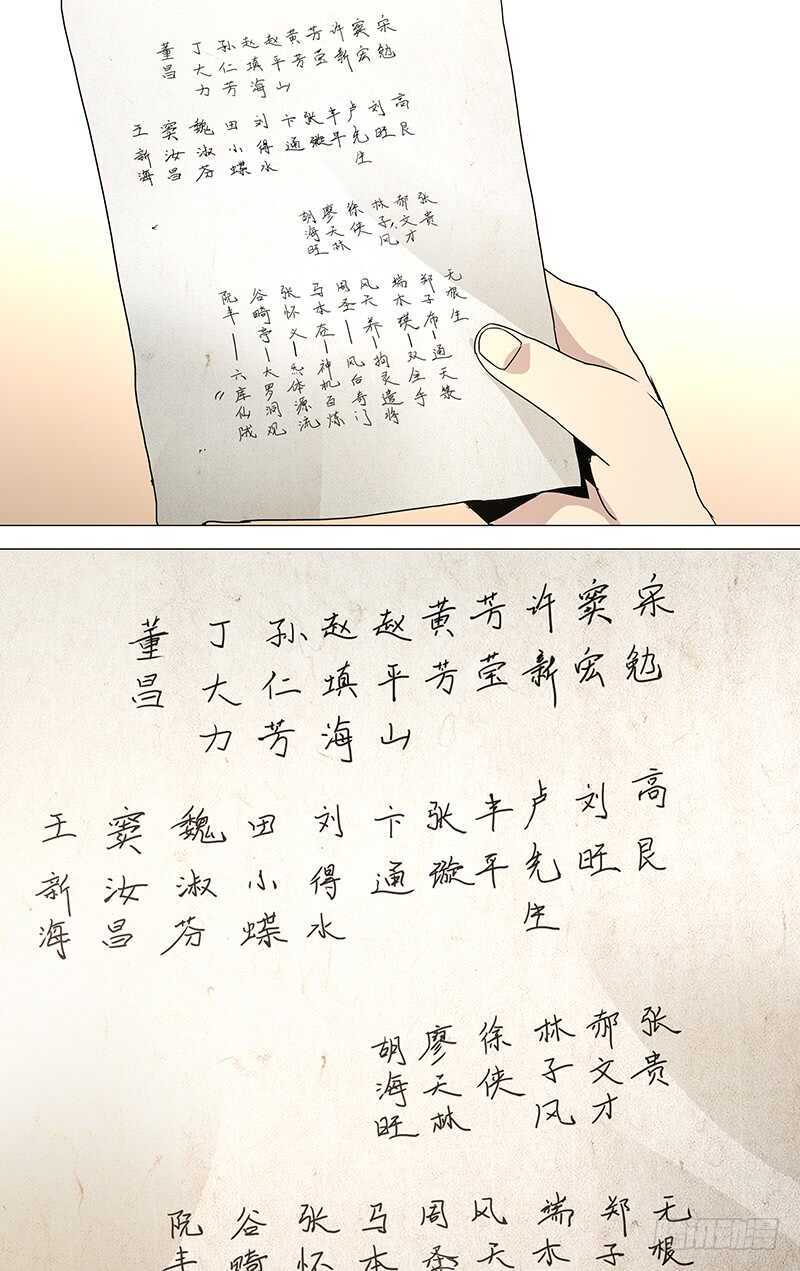 宋勉
窦宏
许新
芳莹
黄芳
赵平山
赵填海
孙仁芳
丁大力
董昌
高艮
刘旺
卢先生
丰平
张璇
卞通
刘得水
田小蝶
魏淑芬
窦汝昌
王新海
张贵
郝文才
林子风
徐侠
廖天林
胡海旺
无根生
郑子布—通天箓
端木瑛—双全手
风天养—拘灵遣将
周圣—风后奇门
马本在—神机百炼
张怀义—炁体源流
谷畸亭—大罗洞观
阮丰——六库仙贼
宋勉
窦宏
许新
芳莹
黄芳
赵平山
赵填海
孙仁芳
丁大力
董昌
高艮
刘旺
卢先生
丰平
张璇
卞通
刘得水
田小蝶
魏淑芬
窦汝昌
王新海
张贵
郝文才
林子风
徐侠
廖天林
胡海旺
无根
郑子
端木
风天
周圣
马本
张怀
谷畸
阮丰